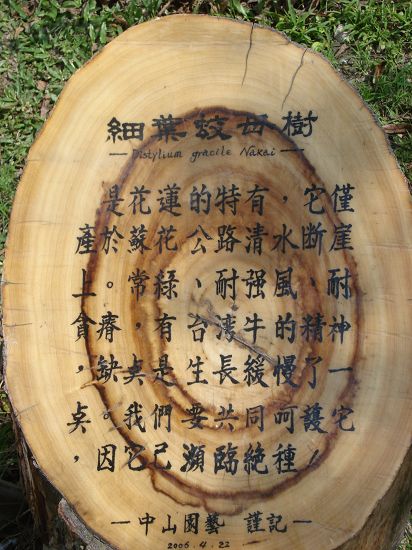 細葉蚊母樹
—Distylium gracile Nakai—
是花蓮的特有，它僅
產於蘇花公路清水断崖
上。常綠、耐强風、耐
貪瘠，有台湾牛的精神
，缺奌是生長緩慢了一
奌。我們要共同呵護它
，因它已瀕臨絶種！
—中山園藝 謹記—
2006.4.22